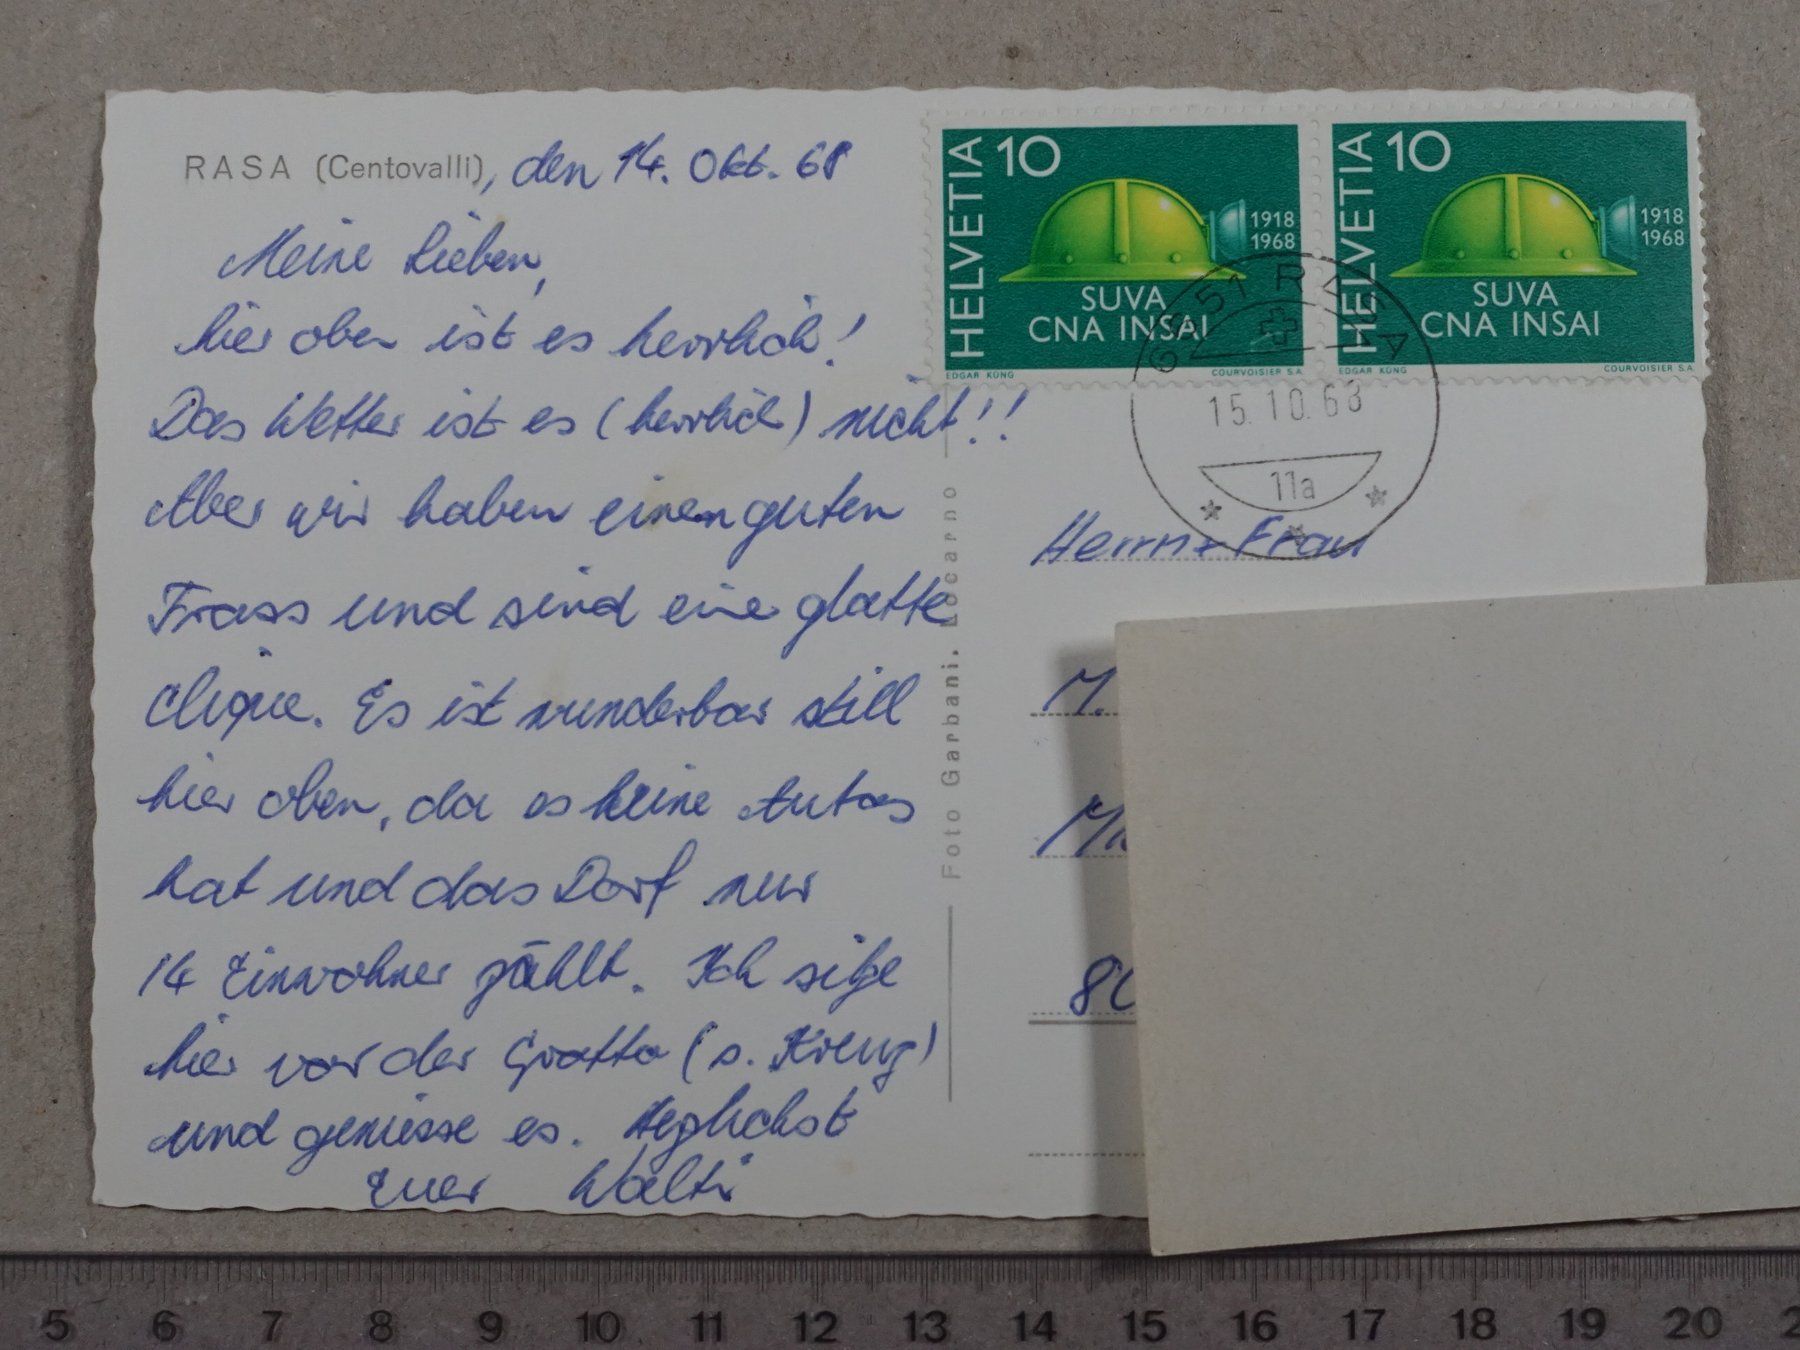 RASA (Centovalli), den 14. Okt. 68
Meine Lieben,
hier oben ist es herrlich!
Das Wetter ist es (herrlich) nicht!!
Aber wir haben einen guten
Frass und sind eine glatte
Clique. Es ist wunderbar still
hier oben, da es keine Autos
hat und das Dorf nur
14 Einwohner zählt. Ich sitze
hier vor der Grotto (s. Kreuz)
und geniesse es. Herzlichst
Euer Walti
Foto Garbani. Locarno
HELVETIA 10
1918
1968
SUVA
CNA INSAI
EDGAR KÜNG COURVOISIER S.A.
HELVETIA 10
1918
1968
SUVA
CNA INSAI
EDGAR KÜNG COURVOISIER S.A.
6651 RASA
15.10.68
11a
Herrn + Frau
M.
80
5 6 7 8 9 10 11 12 13 14 15 16 17 18 19 20